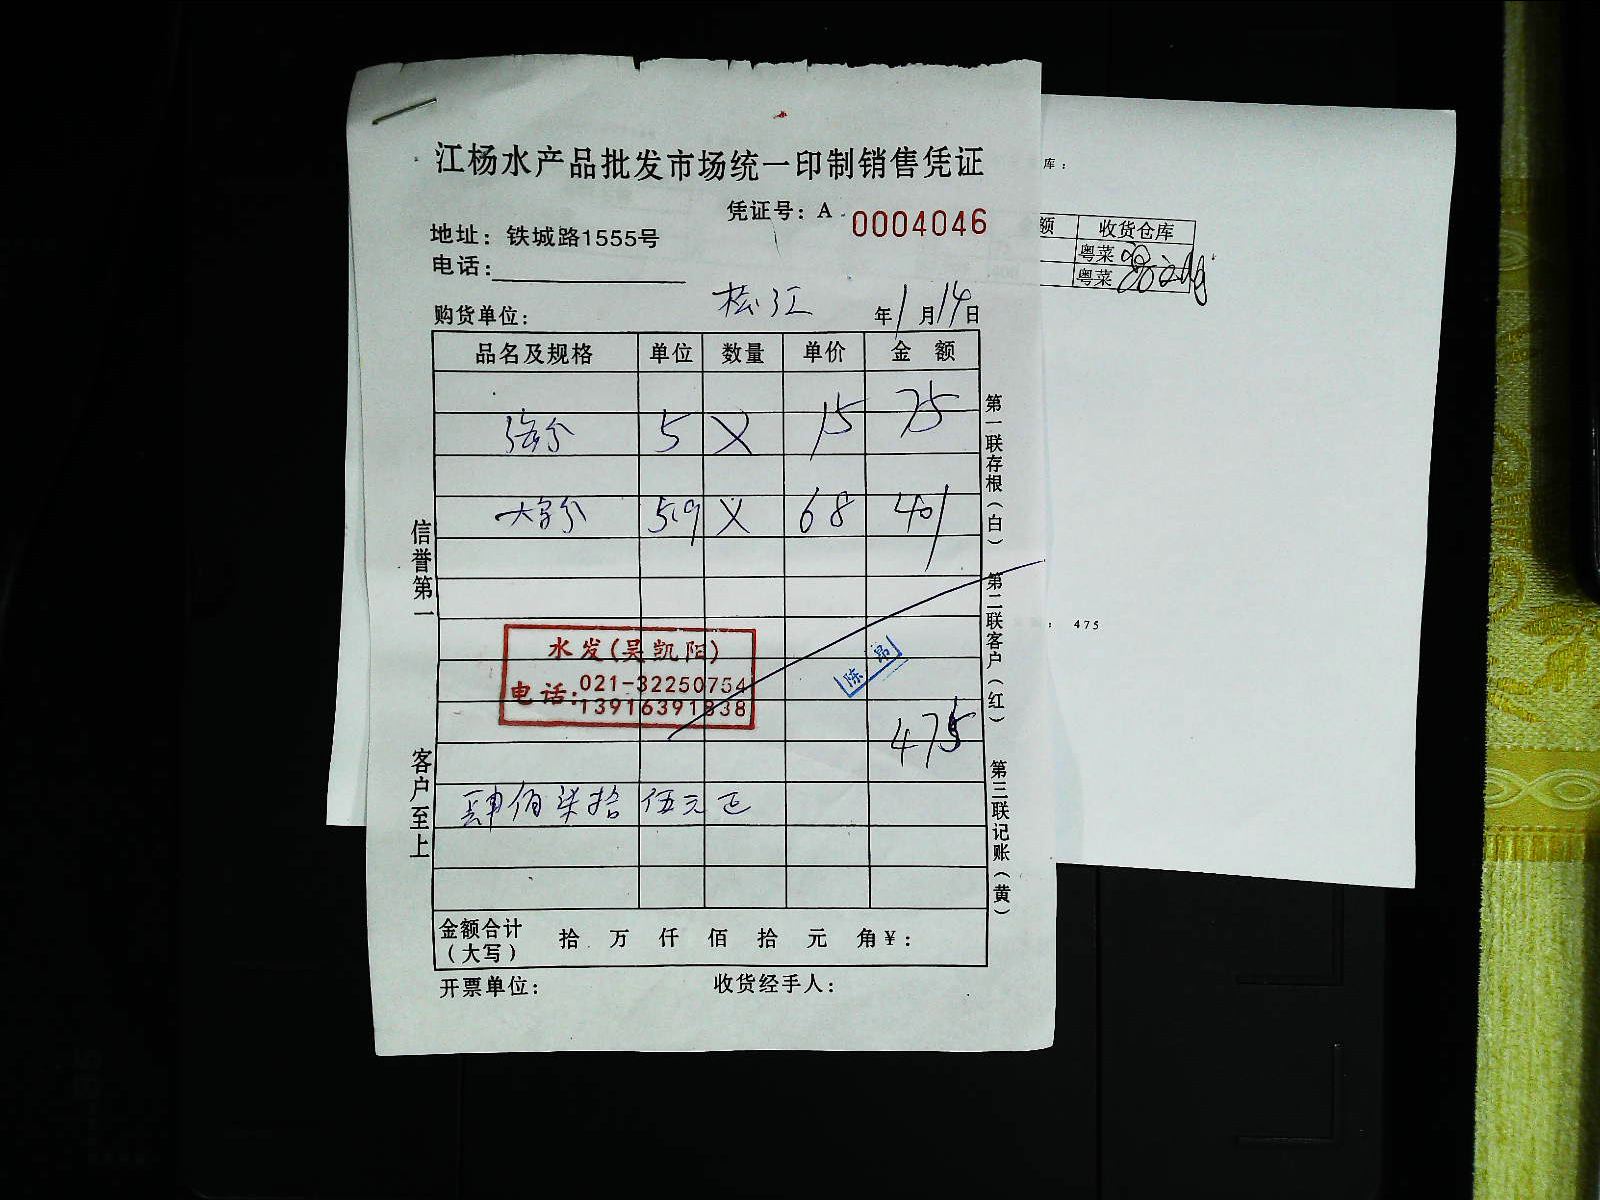 江杨水产品批发市场统一印制销售凭证
凭证号：A 0004046
地址：铁城路1555号
电话：
购货单位： 松江 年1月14日
品名及规格 单位 数量 单价 金 额
5 X 15 75
5.9 X 68 401
水发(吴凯阳)
电话：021-32250754
13916391838
陈昂
475
肆佰柒拾伍元正
金额合计（大写） 拾 万 仟 佰 拾 元 角￥：
开票单位： 收货经手人：
信誉第一
客户至上
第一联存根（白）
第二联客户（红）
第三联记账（黄）
库：
额 收货仓库
粤菜
粤菜
： 475